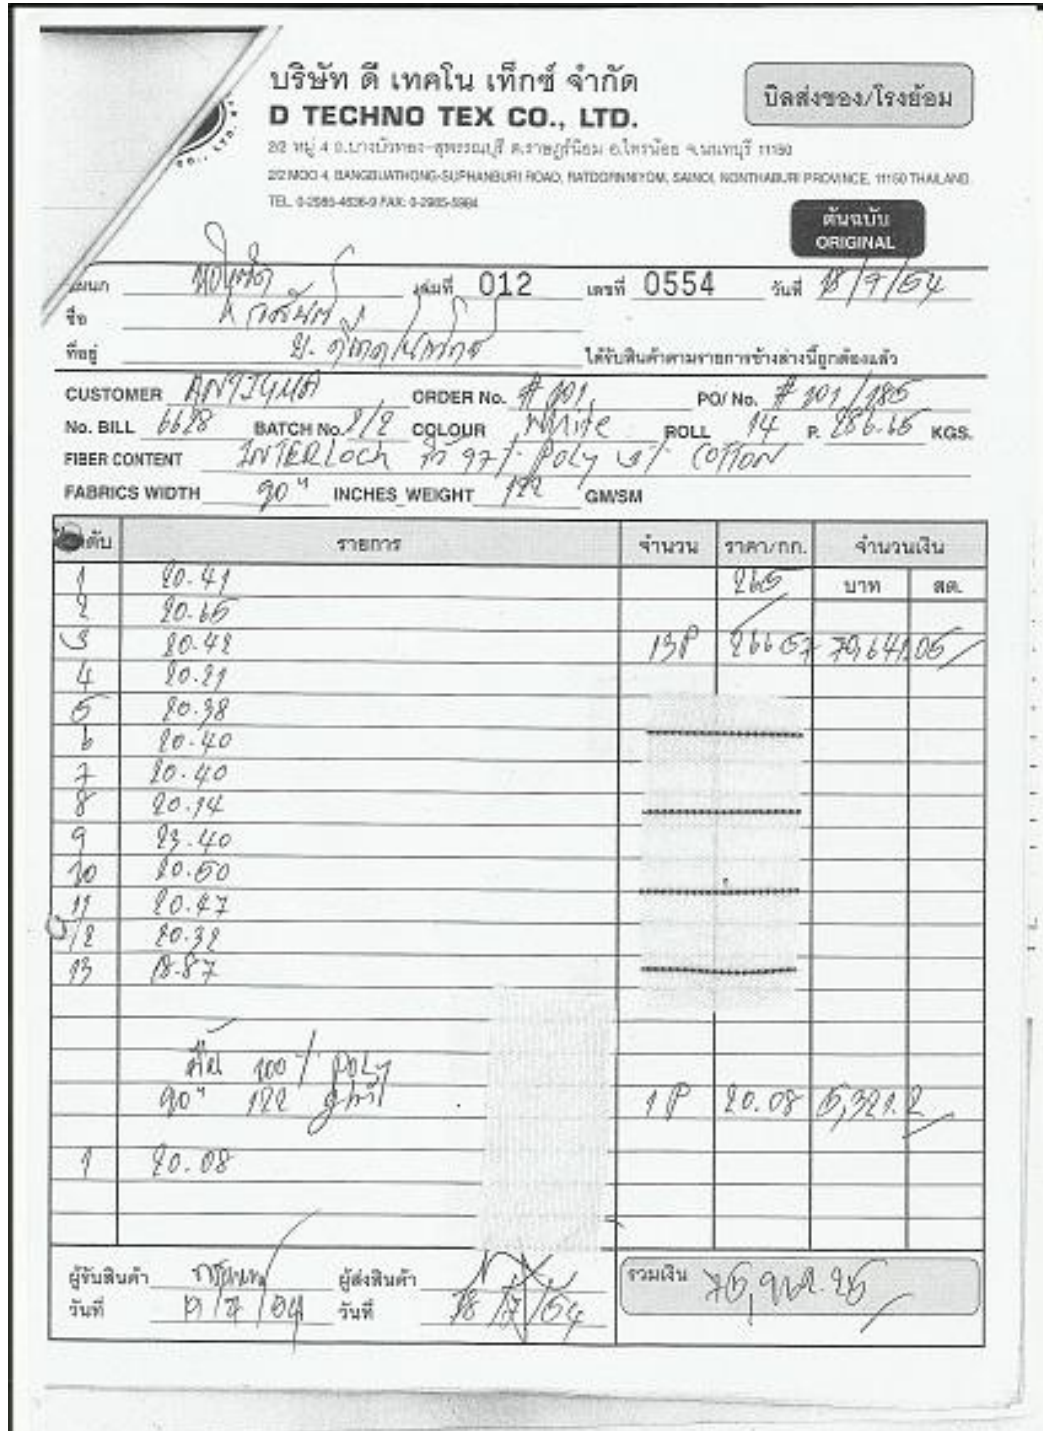 บริษัท ดี เทคโน เท็กซ์ จำกัด
บิลส่งของ/โรงย้อม
D TECHNO TEX CO., LTD.
2/2 หมู่ 4 ถ.บางบัวทอง-สุพรรณบุรี ต.ราษฎร์นิยม อ.ไทรน้อย จ.นนทบุรี 11150
2/2 MOO 4, BANGBUATHONG-SUPHANBURI ROAD, RATDORNNIYOM, SAINOI, NONTHABURI PROVINCE, 11150 THAILAND.
TEL. 0-2985-4636-9 FAX: 0-2985-5984
ต้นฉบับ
ORIGINAL
แผนก เล่มที่ 012 เลขที่ 0554 วันที่ 18/7/54
ชื่อ
ที่อยู่ ได้รับสินค้าตามรายการข้างล่างนี้ถูกต้องแล้ว
CUSTOMER ANTIGUA ORDER No. # 201 PO/ No. # 201/185
No. BILL 6628 BATCH No. 2/2 COLOUR White ROLL 14 P. 286.65 KGS.
FIBER CONTENT INTERLOCK 97% POLY 3% COTTON
FABRICS WIDTH 90" INCHES WEIGHT 122 GM/SM
ลำดับ รายการ จำนวน ราคา/กก. จำนวนเงิน
1 20.41 265 บาท สต.
2 20.65
3 20.42 13P 266.57 70,641.05
4 20.21
5 20.38
6 20.40
7 20.40
8 20.14
9 23.40
10 20.50
11 20.47
12 20.32
13 18.87
100% POLY
90" 122 g/m2 1P 20.08 5,321.2
1 20.08
ผู้รับสินค้า ผู้ส่งสินค้า รวมเงิน 75,962.25
วันที่ 19/7/54 วันที่ 18/7/54